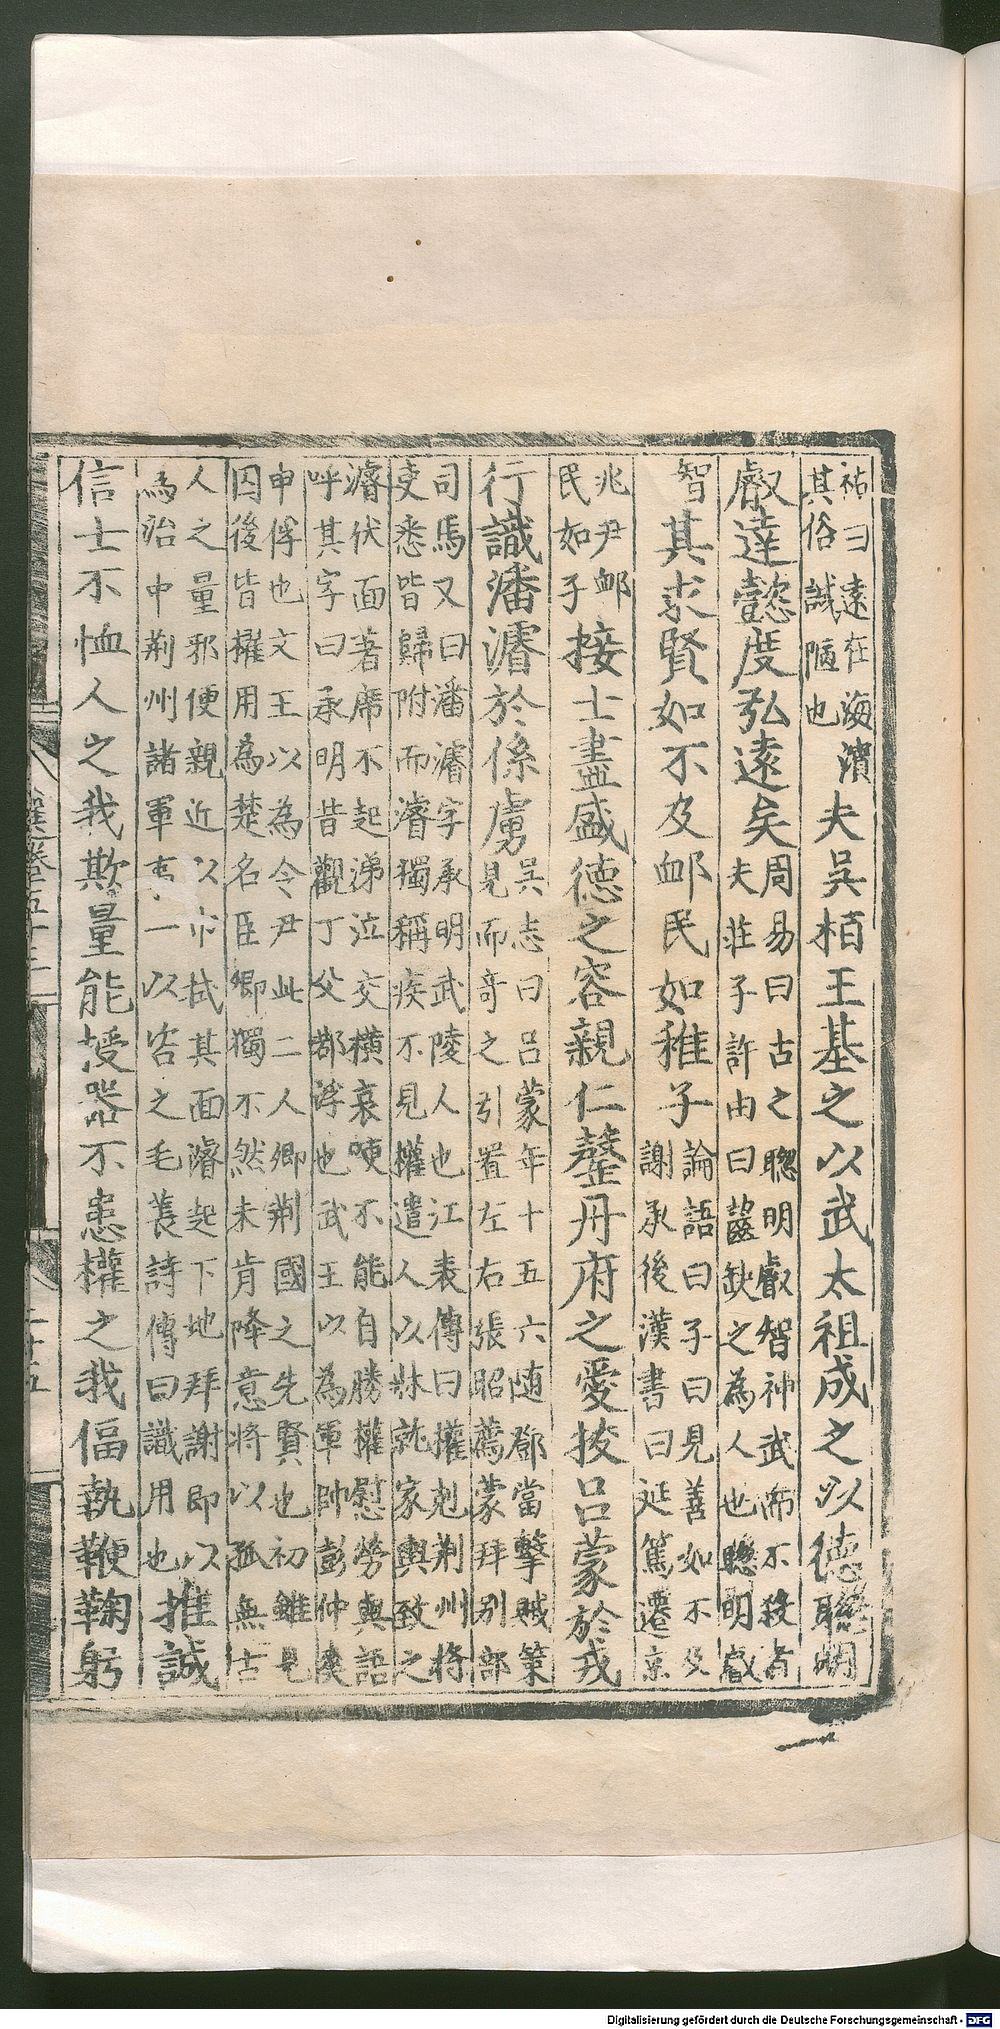 祐曰遠在海濱
其俗誠陋也
夫吳栢王基之以武太祖成之以德聦明
叡達懿度弘遠矣
周易曰古之聦明叡智神武而不殺者
夫莊子許由曰齧缺之為人也聰明叡
智
其求賢如不及䘏民如稚子
論語曰子曰見善如不及
謝承後漢書曰延篤遷京
兆尹䘏
民如子
接士盡盛德之容親仁罄丹府之愛拔呂蒙於戎
行識潘濬於係虜
吳志曰呂蒙年十五六随鄧當擊賊策
見而奇之引置左右張昭薦蒙拜别部
司馬又曰潘濬字承明武陵人也江表傳曰權剋荊州將
吏悉皆歸附而濬獨稱疾不見權遣人以牀就家輿致之
濬伏面著席不起涕泣交横哀哽不能自勝權慰勞與語
呼其字曰承明昔觀丁父鄀俘也武王以為軍帥彭仲爽
申俘也文王以為令尹此二人卿荊國之先賢也初雖見
囚後皆擢用為楚名臣卿獨不然未肯降意將以孤無古
人之量邪便親近以巾拭其面濬起下地拜謝即以
為治中荊州諸軍事一以咨之毛萇詩傳曰識用也
推誠
信士不恤人之我欺量能授器不患權之我偪執鞭鞠躬
選卷五十三
二十五
Digitalisierung gefördert durch die Deutsche Forschungsgemeinschaft - DFG